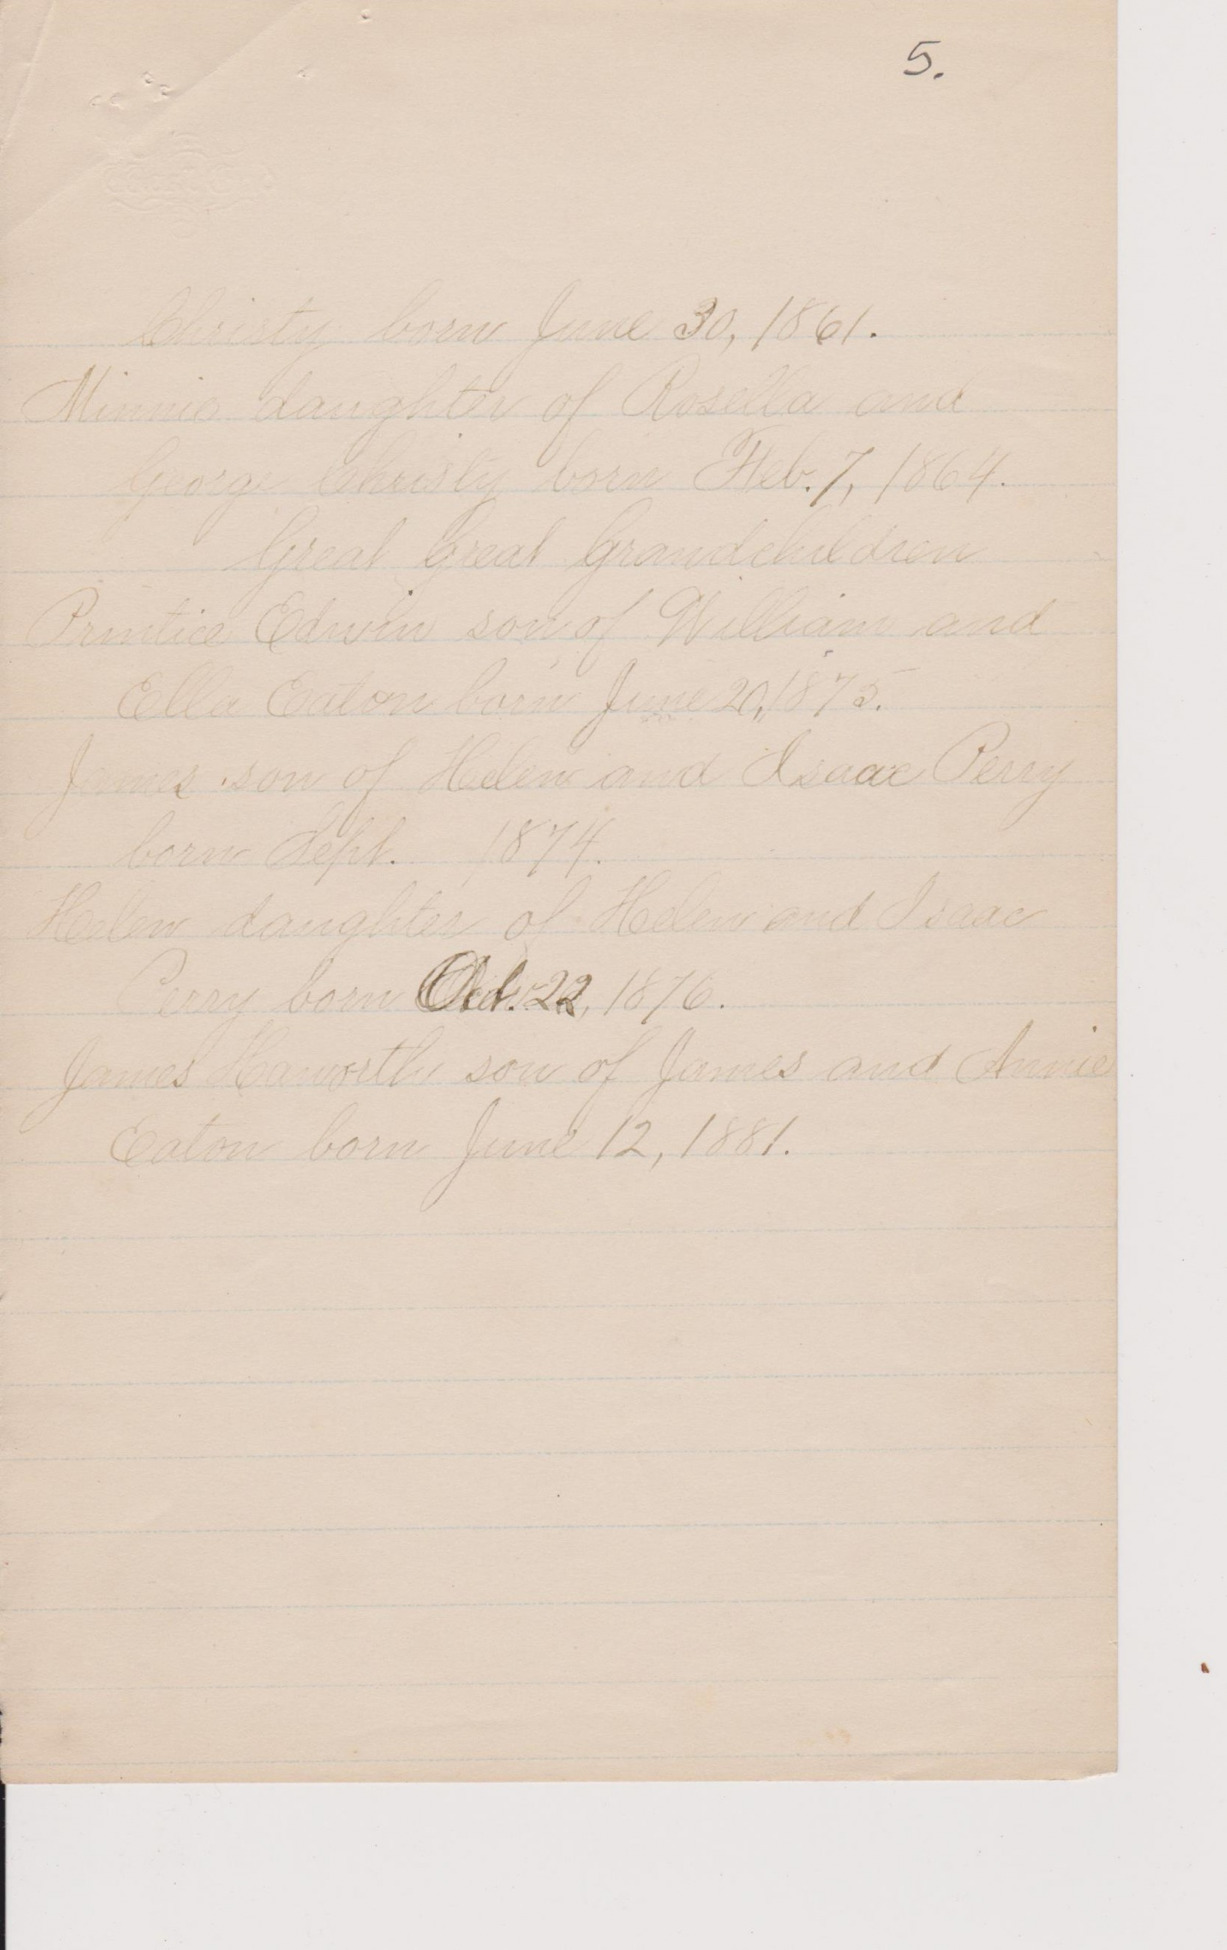 5.
Christy born June 30, 1861.
Minnie daughter of Rosella and
George Christy born Feb. 7, 1864.
Great Great Grandchildren
Printice Edwin son of William and
Ella Eaton born June 20, 1875.
James son of Helen and Isaac Perry
born Sept. 1874.
Helen daughter of Helen and Isaac
Perry born Oct. 22, 1876.
James Haworth son of James and Annie
Eaton born June 12, 1881.